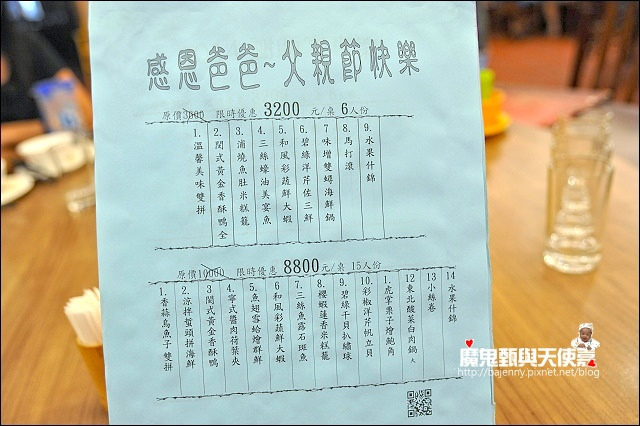 感恩爸爸~父親節快樂
原價3600 限時優惠 3200 元/桌 6人份
1. 溫馨美味雙拼
2. 閩式黃金香酥鴨全
3. 蒲燒魚肚米糕籠
4. 三絲蠔油美宴魚
5. 和風彩蔬鮮大蝦
6. 碧綠洋芹佐三鮮
7. 味增雙蟳海鮮鍋
8. 馬打滾
9. 水果什錦
原價10000 限時優惠 8800元/桌 15人份
1. 香蒜烏魚子雙拼
2. 涼拌蜇頭拼海鮮
3. 閩式黃金香酥鴨
4. 寧式醬肉荷葉夾
5. 魚翅雪蛤燴群鮮
6. 和風彩蔬鮮大蝦
7. 三絲魚露石斑魚
8. 櫻蝦蓮香米糕籠
9. 碧綠干貝扒繡球
10. 彩椒洋芹帆立貝
1. 虎掌栗子燴鮑角
12 東北酸菜白肉鍋 大
13 小絲卷
14 水果什錦
魔鬼甄與天使嘉
http://bajenny.pixnet.net/blog